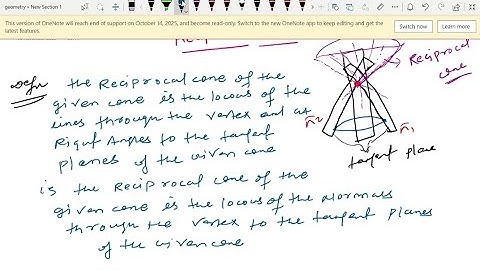 geometry » New Section 1
This version of OneNote will reach end of support on October 14, 2025, and become read-only. Switch to the new OneNote app to keep editing and get the latest features.
Switch now
Learn more
Defn
the Reciprocal cone of the
given cone is the locus of the
lines through the vertex and at
Right Angles to the tangent
planes of the given cone
is the Reciprocal cone of the
given cone is the locus of the Normals
through the vertex to the tangent planes
of the given cone
Reciprocal
cone
π2
π1
tangent plane